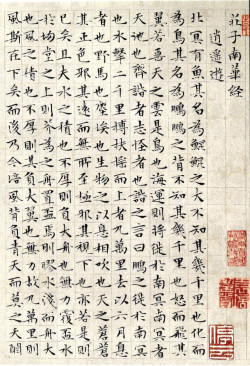 莊子南華经
逍遥遊
北冥有魚其名為鯤鯤之大不知其幾千里也化而
為鳥其名為鵬鵬之背不知其幾千里也怒而飛其
翼若垂天之雲是鳥也海運則將徙於南冥南冥者
天池也齊諧者志怪者也諧之言曰鵬之徙於南冥
也水擊三千里摶扶搖而上者九萬里去以六月息
者也野馬也塵埃也生物之以息相吹也天之蒼蒼
其正色邪其遠而無所至極邪其視下也亦若是則
已矣且夫水之積也不厚則其負大舟也無力覆盃水
於坳堂之上則芥為之舟置盃焉則膠水淺而舟大
也風之積也不厚則其負大翼也無力故九萬里則
風斯在下矣而後乃今培風背負青天而莫之夭閼